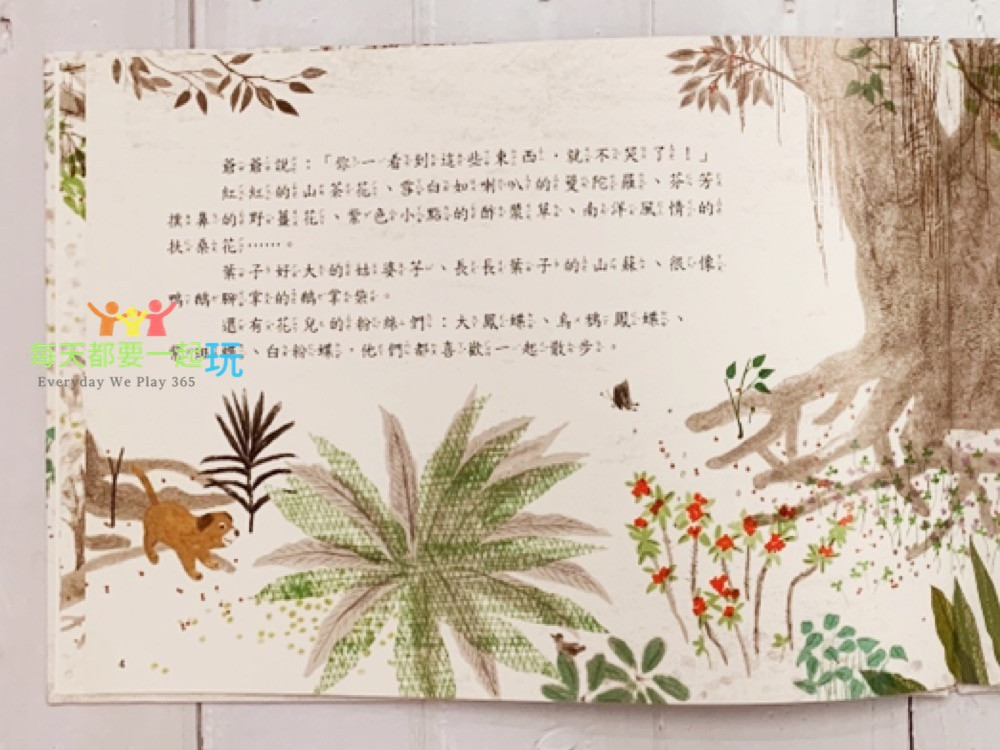 爺爺說：「你一看到這些東西，就不哭了！」
紅紅的山茶花、雪白如喇叭的曼陀羅、芬芳
撲鼻的野薑花、紫色小點的酢漿草、南洋風情的
扶桑花……。
葉子好大的姑婆芋、長長葉子的山蘇、很像
鴨鵝腳掌的鵝掌柴。
還有花兒的粉絲們：大鳳蝶、烏鴉鳳蝶、
蝶、白粉蝶，他們都喜歡一起散步。
每天都要一起玩
Everyday We Play 365
4